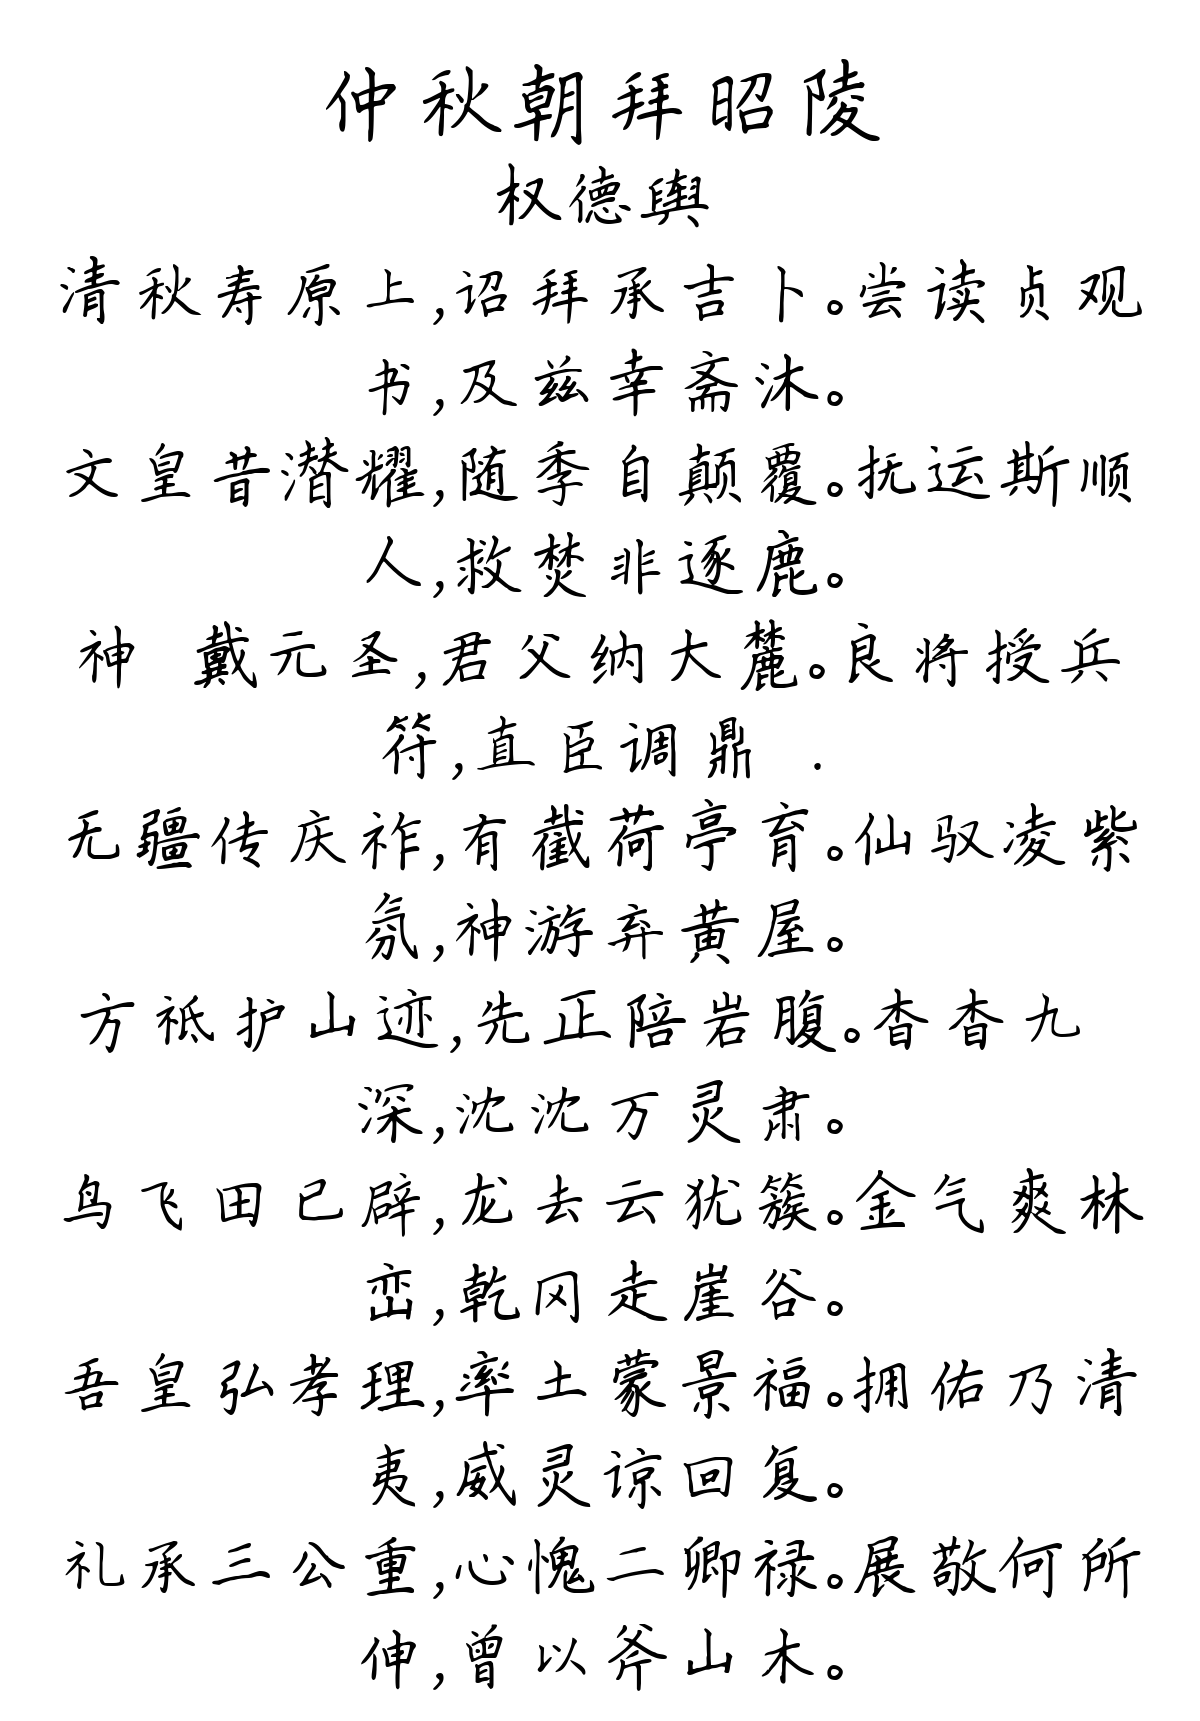 仲秋朝拜昭陵
权德舆
清秋寿原上,诏拜承吉卜。尝读贞观
书,及兹幸斋沐。
文皇昔潜耀,随季自颠覆。抚运斯顺
人,救焚非逐鹿。
神 戴元圣,君父纳大麓。良将授兵
符,直臣调鼎 .
无疆传庆祚,有截荷亭育。仙驭凌紫
氛,神游弃黄屋。
方祗护山迹,先正陪岩腹。杳杳九
深,沈沈万灵肃。
鸟飞田已辟,龙去云犹簇。金气爽林
峦,乾冈走崖谷。
吾皇弘孝理,率土蒙景福。拥佑乃清
夷,威灵谅回复。
礼承三公重,心愧二卿禄。展敬何所
伸,曾以斧山木。